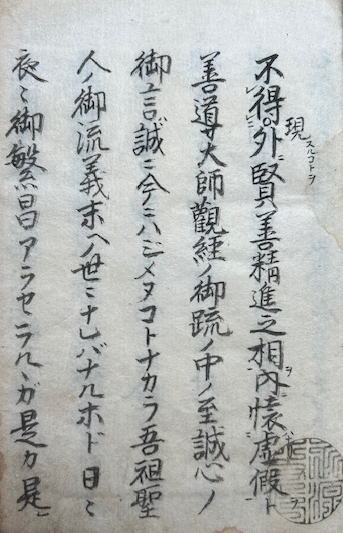 不得外現スルコトヲ賢善精進之相ヲ内懐虚假ト
善導大師觀経ノ御䟽ノ中ノ至誠心ノ
御言誠ニ今ニハジメヌコトナカラ吾祖聖
人ノ御流義末ヘノ世ニナレバナルホド日ニ
夜ニ御繁昌アラセラルヽガ是カ是